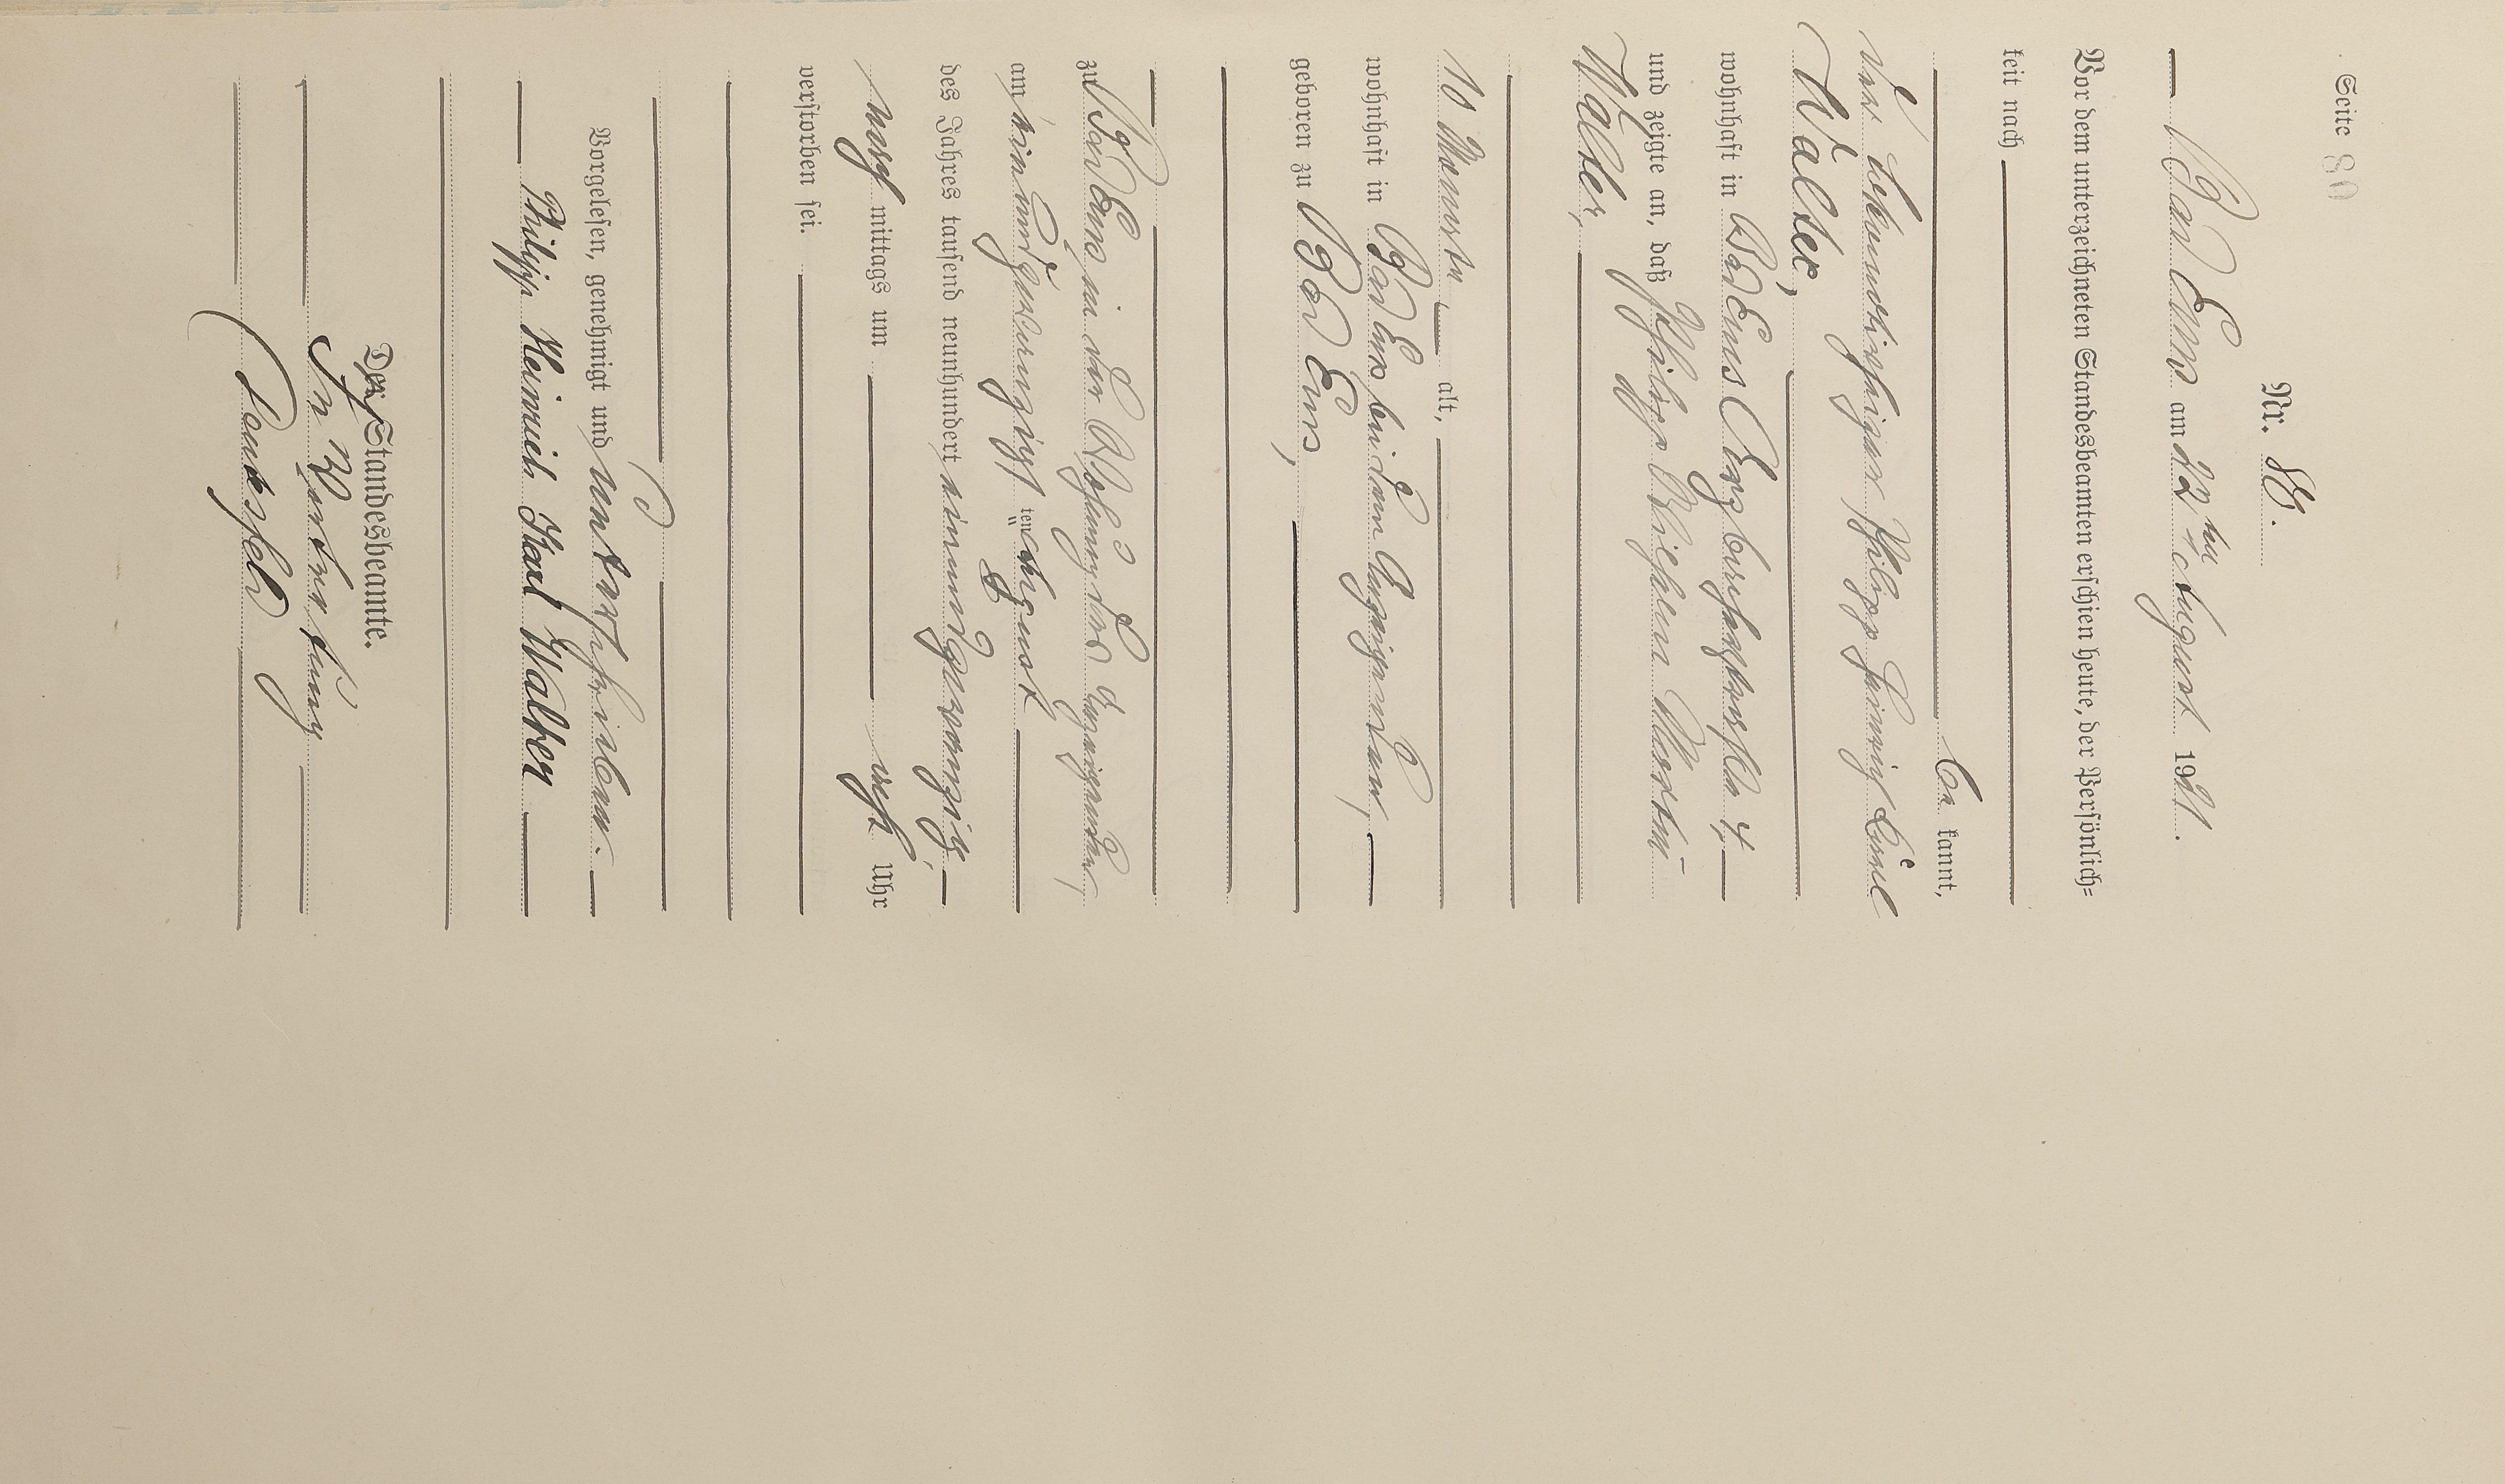 Seite 80
Nr. 88.
Bad Ems am 22ten August 1921.
Vor dem unterzeichneten Standesbeamten erschien heute, der Persönlich=
keit nach
be kannt,
der Lokomotivheizer Philipp Heinrich Karl
Walter,
wohnhaft in Bad Ems
und zeigte an, daß Philipp Wilhelm Martin
Walter,
10 Monate alt,
wohnhaft in Bad Ems bei dem Anzeigenden,
geboren zu Bad Ems,
zu Bad Ems in der Wohnung des Anzeigenden,
am einundzwanzigsten August
des Jahres tausend neunhundert einundzwanzig,
nach mittags um acht Uhr
verstorben sei.
Vorgelesen, genehmigt und unterschrieben.
Philipp Heinrich Karl Walter
Der Standesbeamte.
In Vertretung